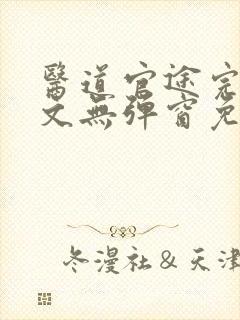 醫道官途完
文無彈窗免
冬漫社&天津